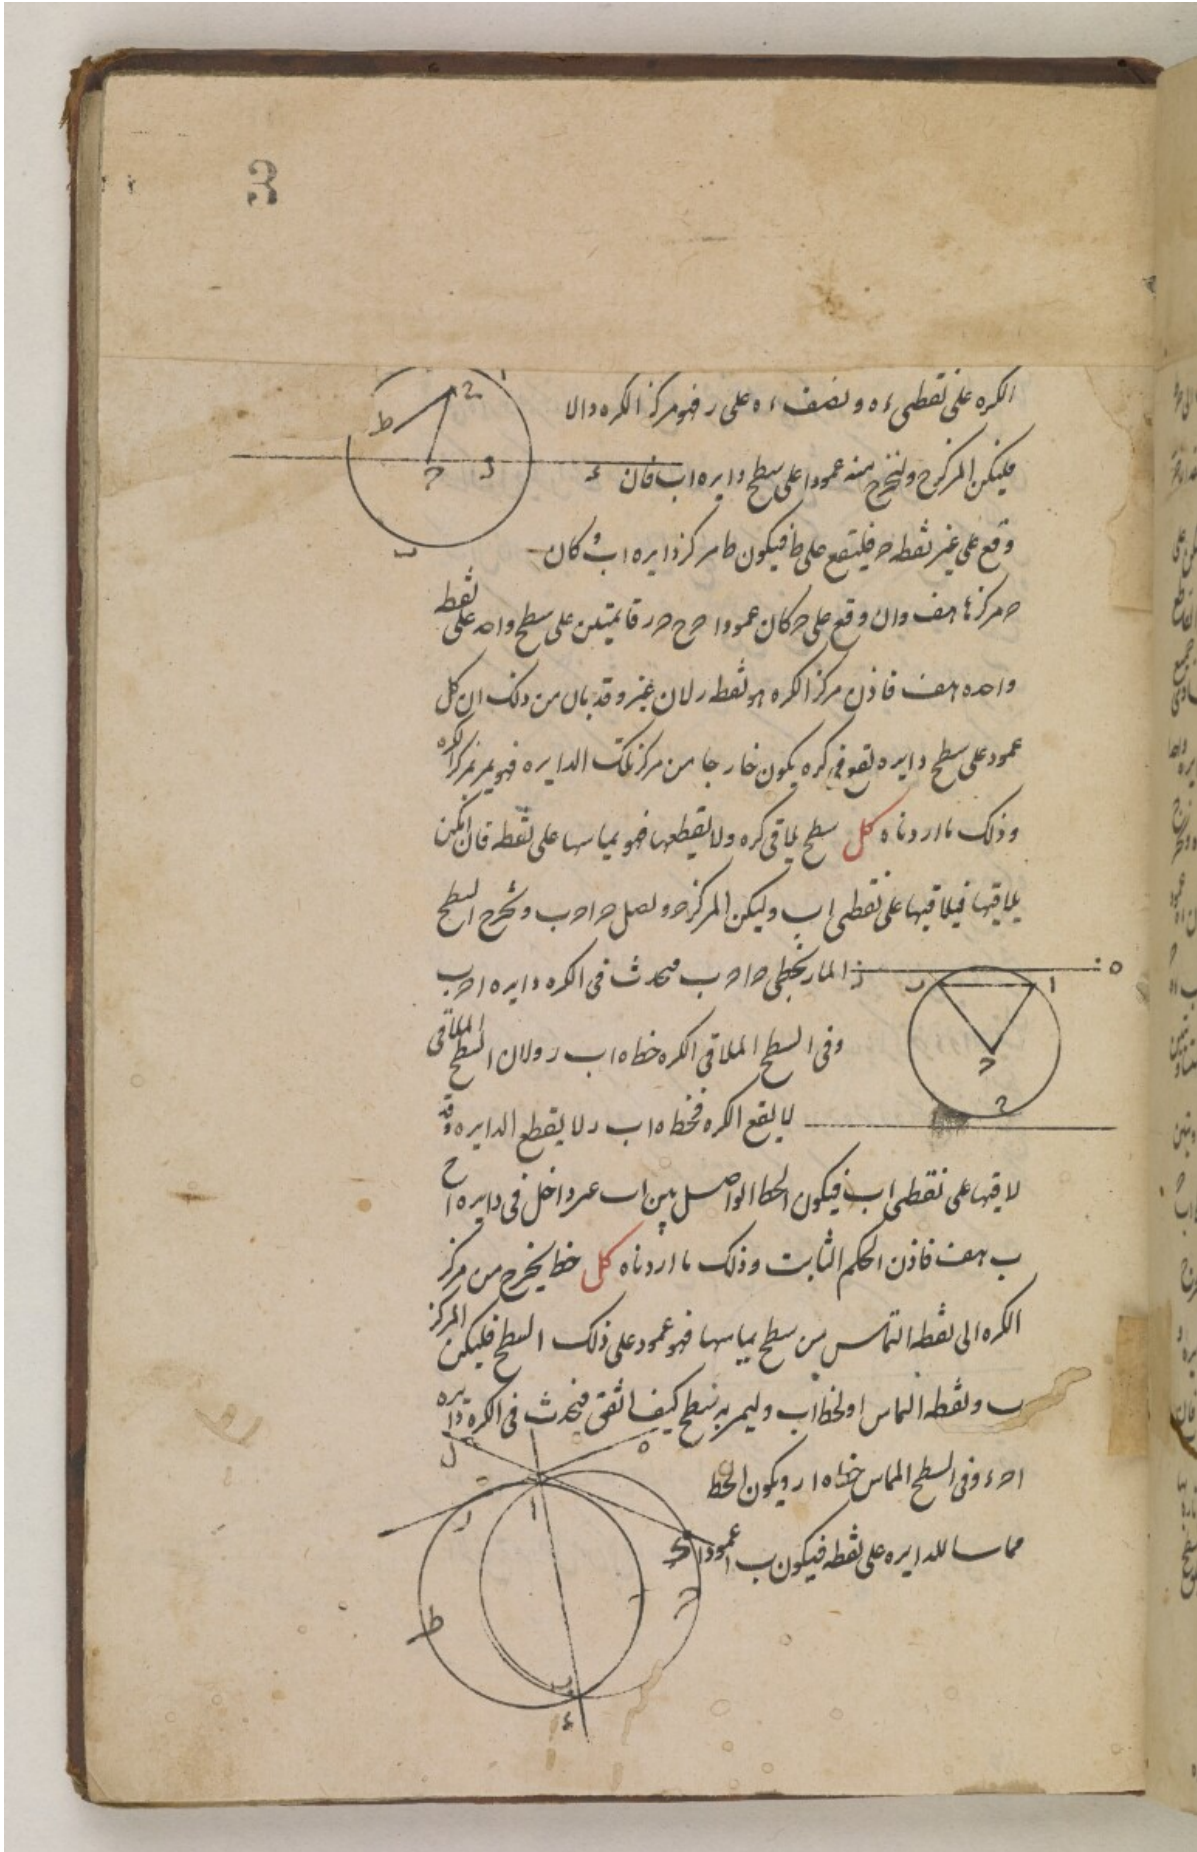 الكره على نقطى ء ه و نصف ء ه على ر فهو مركز الكره والا
فليكن المركز ح ولنخرج منه عمودا على سطح دايره اب فان
وقع على غير نقطه حـ فليقع على ط فيكون ط مركز دايره اب وكان
حـ مركزها هف وان وقع على حـ كان عمودا حـ ح حـ ر قايمتين على سطح واحد على نقطه
واحده هف فاذن مركز الكره هو نقطه ر لا غير وقد بان من ذلك ان كل
عمود على سطح دايره تقع فى كره يكون خارجا من مركز تلك الدايره فهو يمر بمركز الكره
وذلك ما اردناه كل سطح يلاقى كره ولا يقطعها فهو يماسها على نقطه فان لم يكن
يلاقيها فيلاقيها على نقطى اب وليكن المركز حـ ونصل حـ ا حـ ب ونخرج السطح
المار بخطى حـ ا حـ ب فيحدث فى الكره دايره ا حـ ب
وفى السطح الملاقى الكره خط ه ا ب ر ولان السطح الملاقى
لا يقع الكره فخط ه ا ب ر لا يقطع الدايره وقد
لاقيها على نقطى اب فيكون الخط الواصل بين اب غير داخل فى دايره ا ح
ب هف فاذن الحكم ثابت وذلك ما اردناه كل خط يخرج من مركز
الكره الى نقطه التماس من سطح يماسها فهو عمود على ذلك السطح فليكن المركز
ب ونقطه التماس ا والخط اب وليمر به سطح كيف اتفق فيحدث فى الكره دايره
ا حـ ء وفى السطح المماس خط ه ا ر ويكون الخط
مماسا للدايره على نقطه فيكون ب ا عمودا